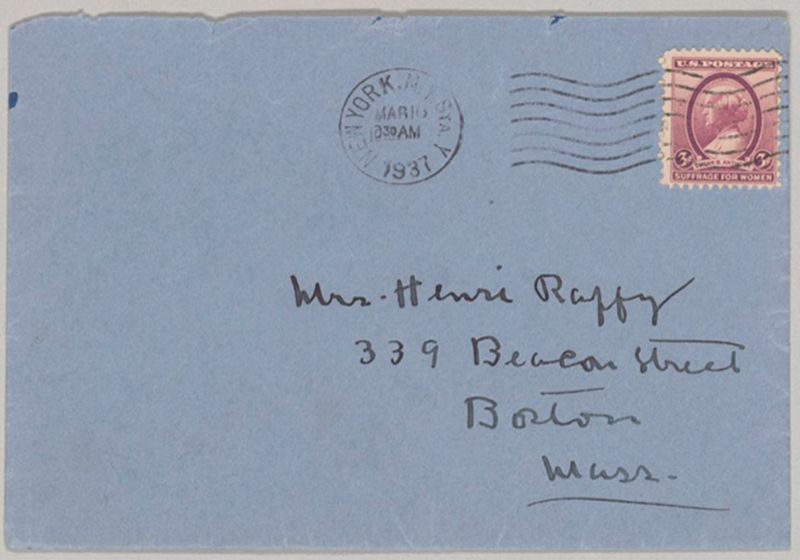 NEW YORK, N.Y. STA. Y
MAR 16
1937
U.S. POSTAGE
3¢ SUSAN B. ANTHONY 3¢
SUFFRAGE FOR WOMEN
Mrs. Henri Raffy
339 Beacon Street
Boston
Mass.